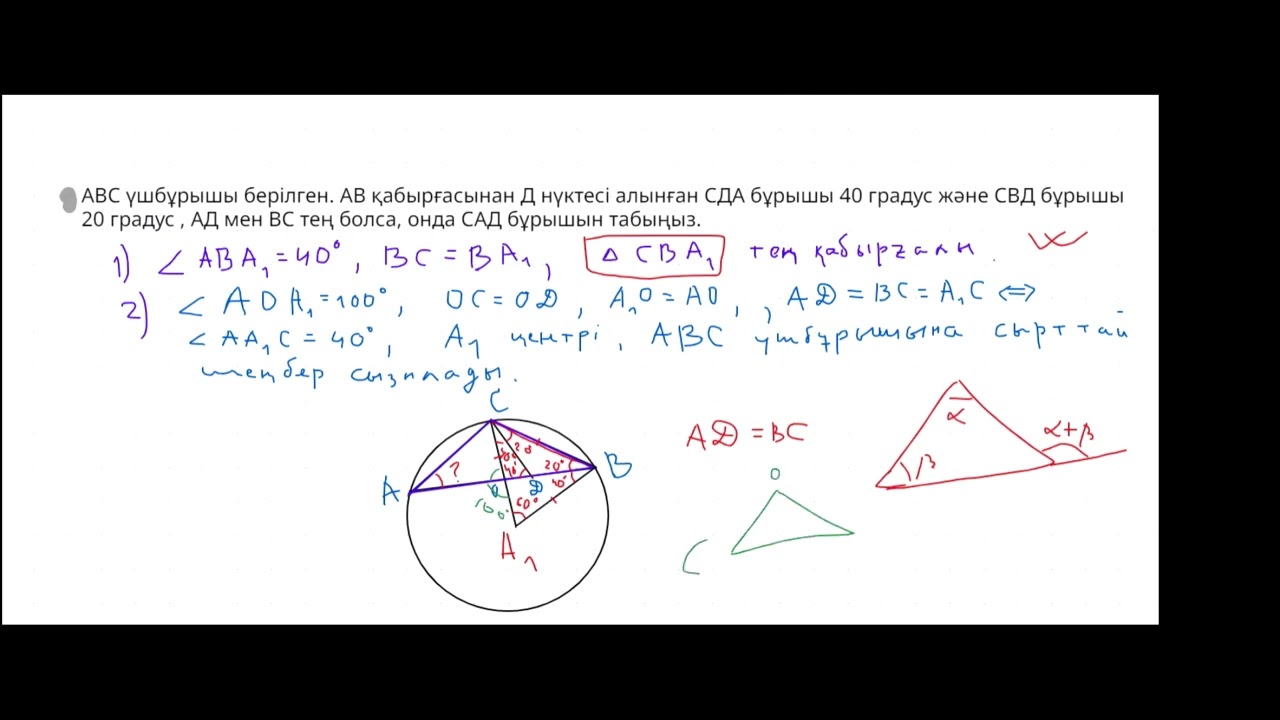 АВС үшбұрышы берілген. АВ қабырғасынан Д нүктесі алынған СДА бұрышы 40 градус және СВД бұрышы
20 градус , АД мен ВС тең болса, онда САД бұрышын табыңыз.
1) ∠ABA₁=40°, BC=BA₁, △CBA₁ тең қабырғалы.
2) ∠AOA₁=100°, OC=OD, A₁O=AO, , AD=BC=A₁C ⇔
∠AA₁C=40°, A₁ центрі, ABC үшбұрышына сырттай
шеңбер сызылады.
C
AD=BC
α
α+β
β
20
40°
20°
B
?
40°
A
O
D
100°
60°
O
C
A₁